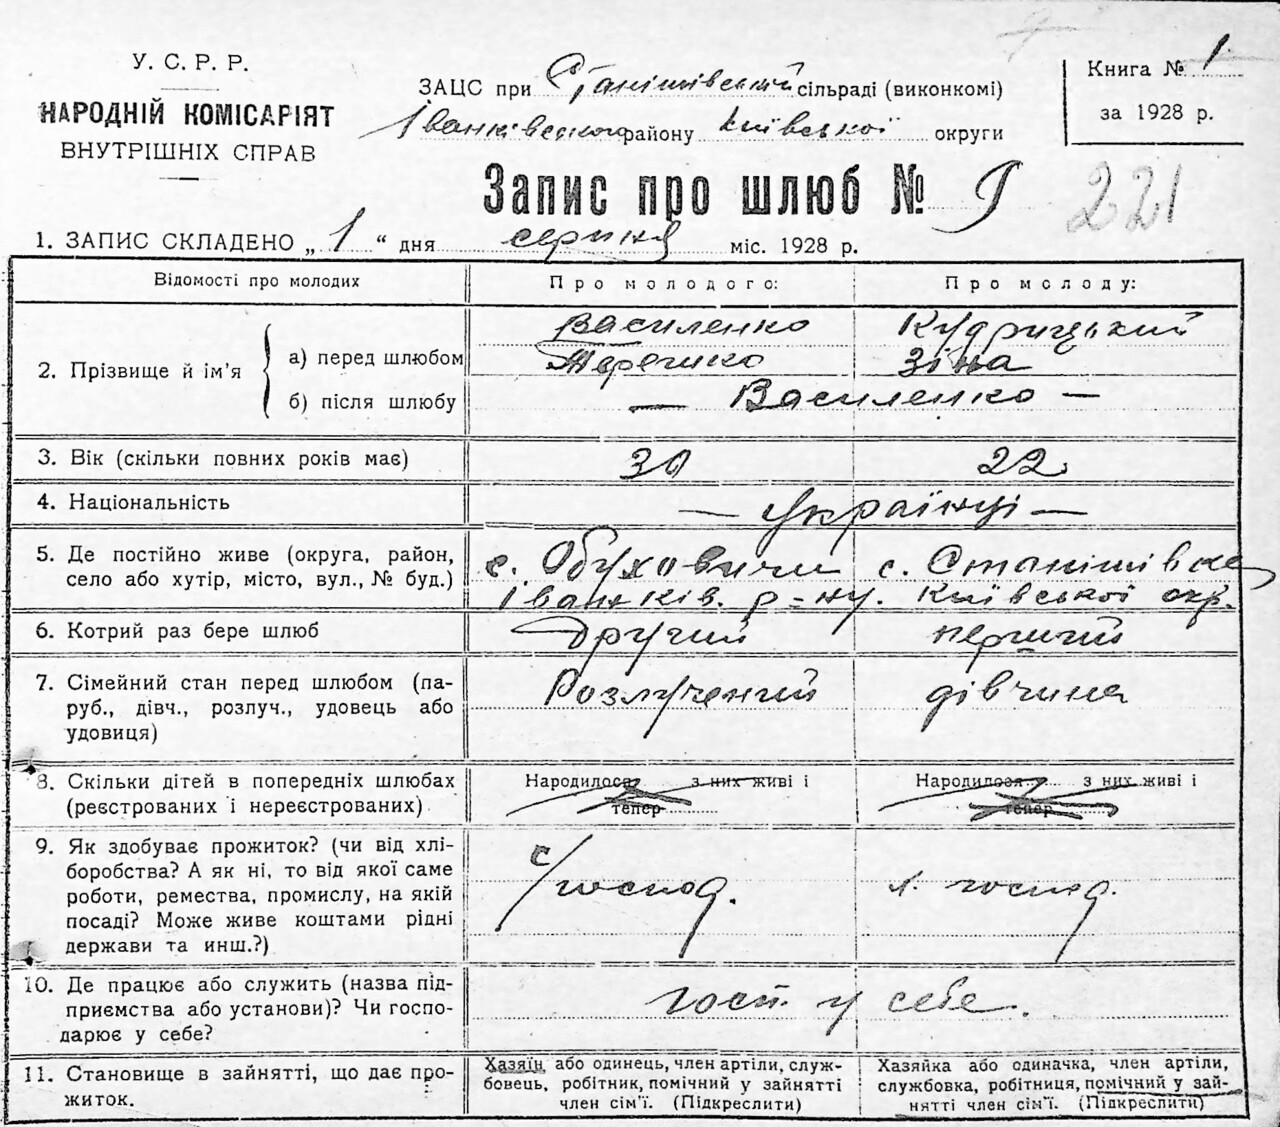 У. С. Р. Р.
НАРОДНІЙ КОМІСАРІЯТ
ВНУТРІШНІХ СПРАВ
ЗАЦС при Станішівській сільраді (виконкомі)
Іванківського району Київської округи
Книга № 1
за 1928 р.
Запис про шлюб №
221
1. ЗАПИС СКЛАДЕНО „ 1 “ дня серпня міс. 1928 р.
Відомості про молодих
Про молодого:
Про молоду:
2. Прізвище й ім’я
а) перед шлюбом
Василенко
Кудрицький
Зіна
б) після шлюбу
— Василенко —
3. Вік (скільки повних років має)
30
22
4. Національність
— Українці —
5. Де постійно живе (округа, район,
село або хутір, місто, вул., № буд.)
с. Обуховичи
с. Станішівка
Іванків. р-ну. Київської окр.
6. Котрий раз бере шлюб
Другий
перший
7. Сімейний стан перед шлюбом (па-
руб., дівч., розлуч., удовець або
удовиця)
Розлучений
дівчина
8. Скільки дітей в попередніх шлюбах
(реєстрованих і нереєстрованих)
Народилося з них живі і
тепер
Народилося з них живі і
тепер
9. Як здобуває прожиток? (чи від хлі-
боробства? А як ні, то від якої саме
роботи, ремества, промислу, на якій
посаді? Може живе коштами рідні
держави та инш.?)
с/господ.
господ.
10. Де працює або служить (назва під-
приємства або установи)? Чи госпо-
дарює у себе?
госп. у себе.
11. Становище в зайнятті, що дає про-
житок.
Хазяїн або одинець, член артіли, служ-
бовець, робітник, помічний у зайнятті
член сім’ї. (Підкреслити)
Хазяйка або одиначка, член артіли,
службовка, робітниця, помічний у зай-
нятті член сім’ї. (Підкреслити)